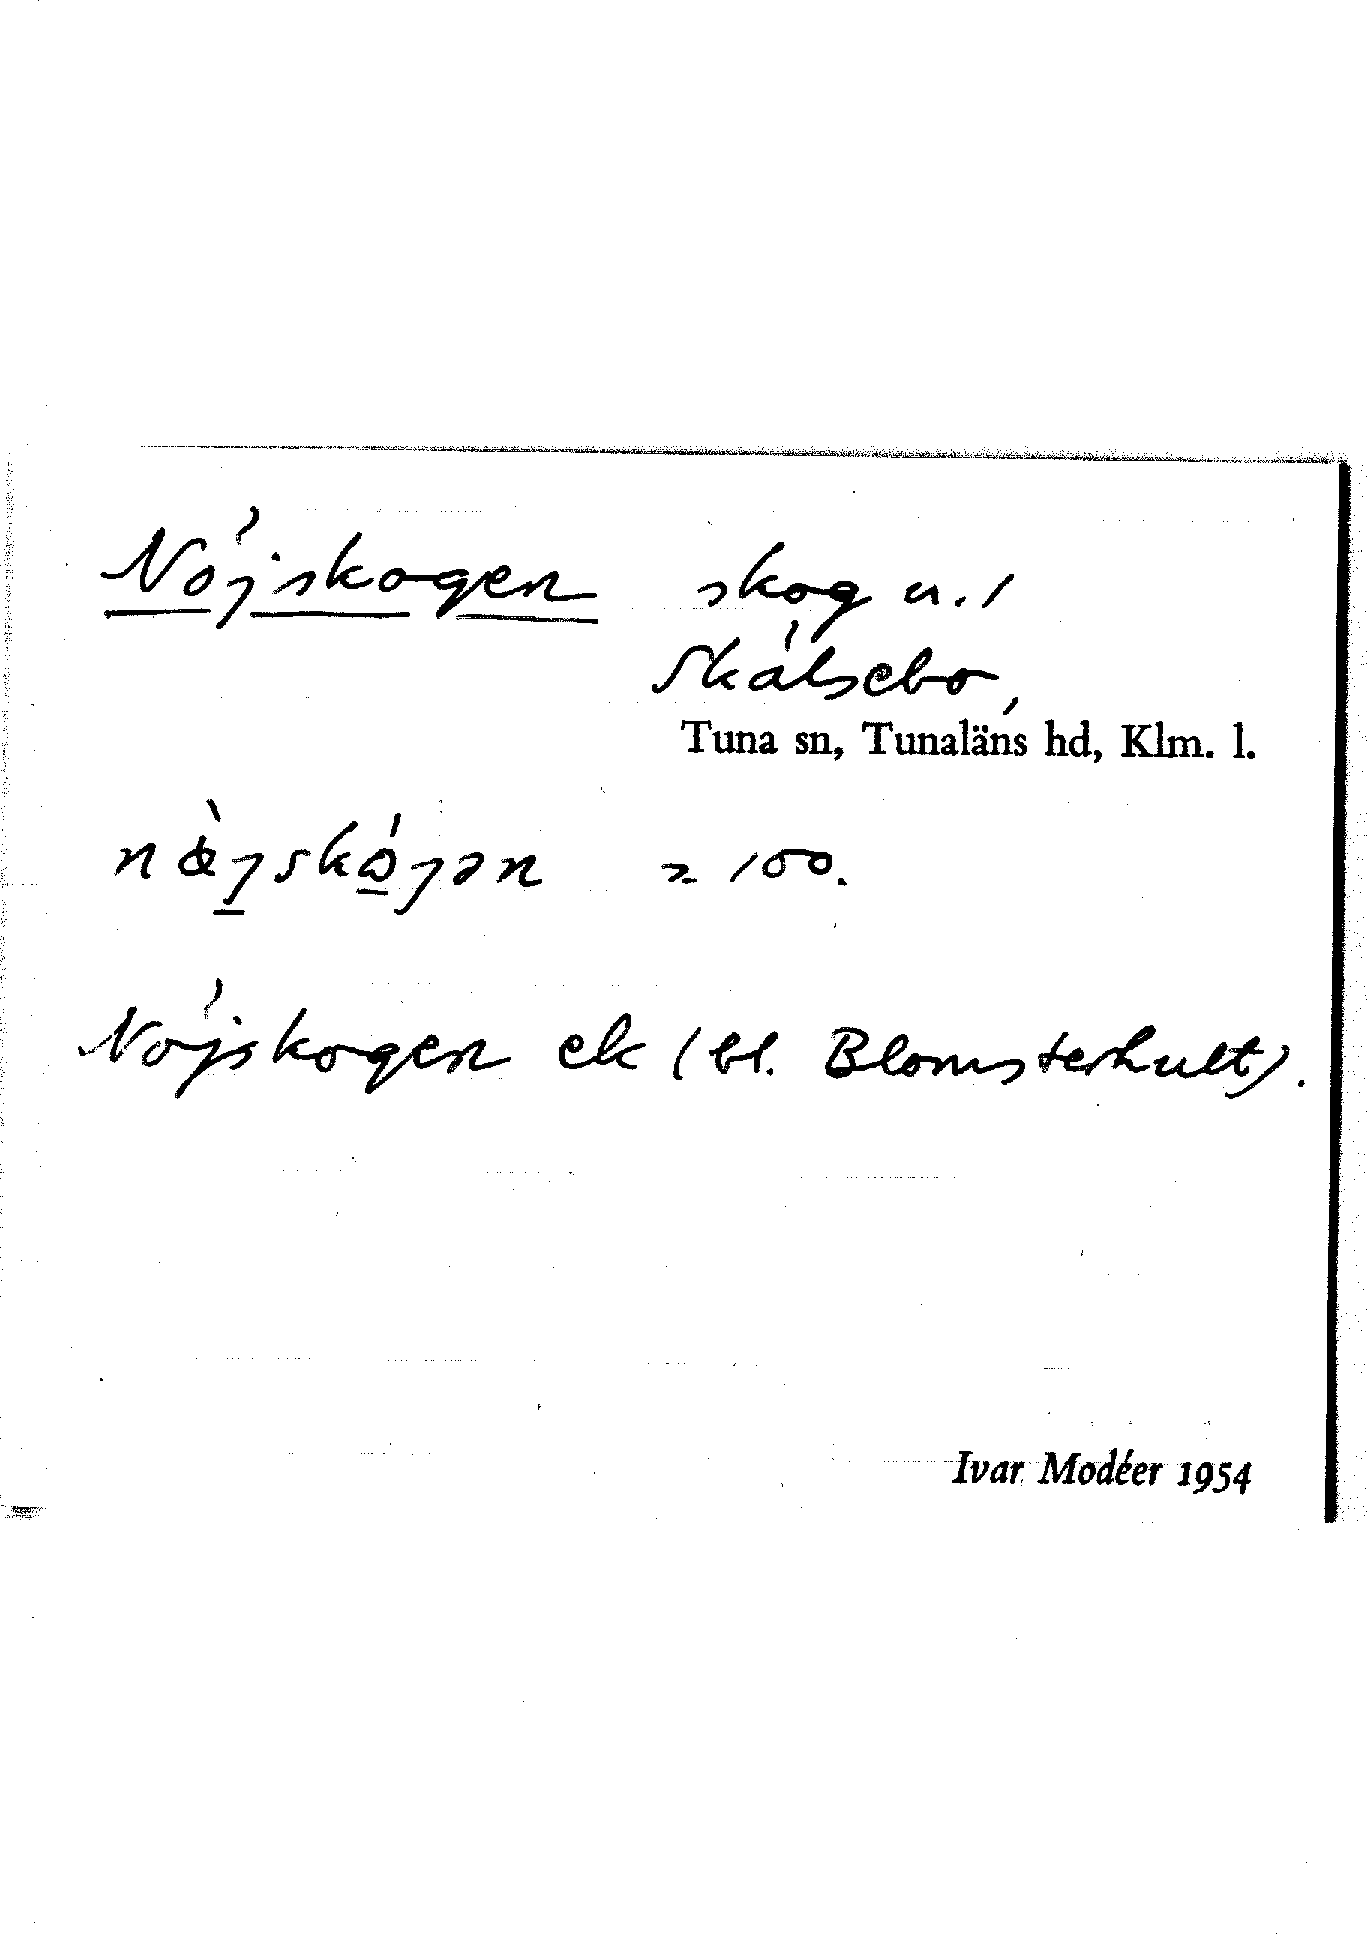 Nöjskogen skog u. /
Skålsebo,
Tuna sn, Tunaläns hd, Klm. l.
= 100.
Nöjskogen ek (bl. Blomsterhult).
Ivar Modéer 1954